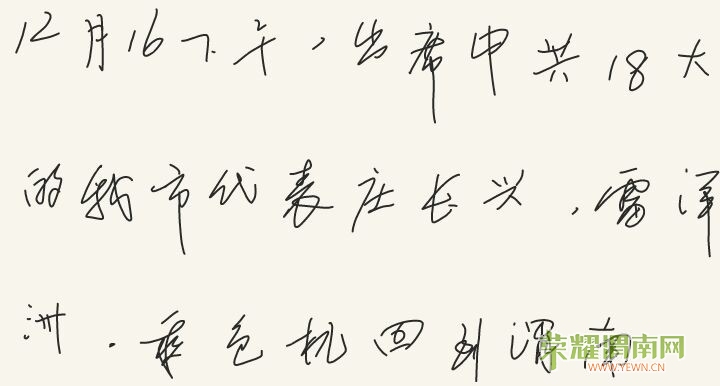 12月16下午，出席中共18大
的我市代表庄长兴，雷泽
洲．乘包机回到渭南
荣耀渭南网
WWW.YEWN.CN